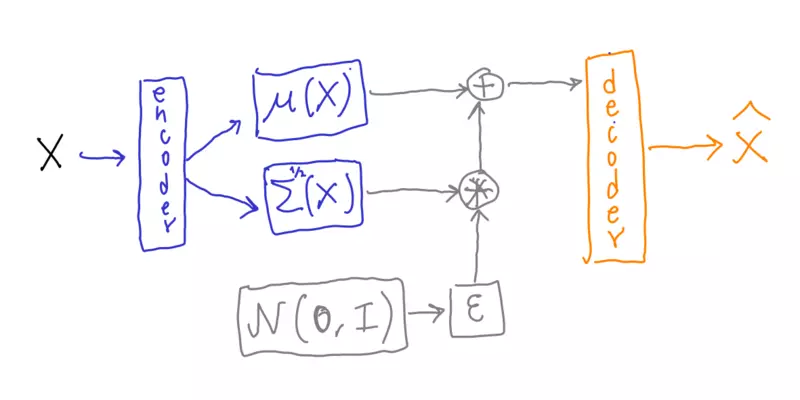 X
encoder
μ(X)
Σ^1/2(X)
N(0, I)
ε
*
+
decoder
X̂